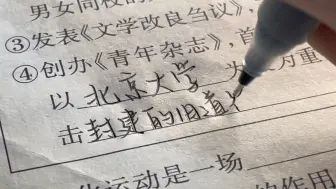 男女同校的
③发表《文学改良刍议》,
④创办《青年杂志》,首
以 北京大学 为 重
击 封建的旧道
化运动是一场
的作用